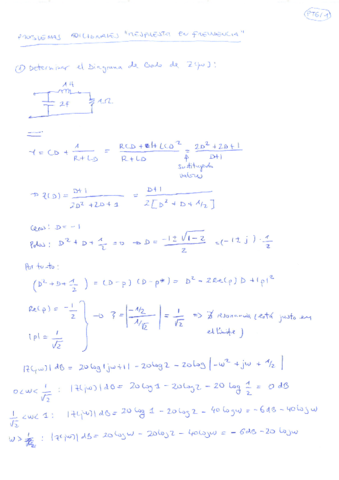 PROBLEMAS ADICIONALES "RESPUESTA EN FRECUENCIA"
① Determinar el Diagrama de Bode de Z(jω):
1H
2F
1Ω
Y = CD + 1/(R+LD) = (RCD + 1 + LCD²)/(R+LD) = (2D²+2D+1)/(D+1)
Sustituyendo valores
→ Z(D) = (D+1)/(2D²+2D+1) = (D+1)/(2[D²+D+1/2])
Ceros: D = -1
Polos: D²+D+1/2 = 0 → D = (-1±√(1-2))/2 = (-1±j)·1/2
Por tanto:
(D²+D+1/2) = (D-p)(D-p*) = D²-2Re(p)D+|p|²
Re(p) = -1/2
|p| = 1/√2
→ ξ = |(-1/2)/(1/√2)| = 1/√2 => ∄ resonancia (está justo en el límite)
|Z(jω)|dB = 20log|jω+1| - 20log2 - 20log|-ω²+jω+1/2|
0<ω<1/√2 : |Z(jω)|dB = 20log1 - 20log2 - 20log 1/2 = 0dB
1/√2<ω<1 : |Z(jω)|dB = 20log1 - 20log2 - 40logω = -6dB - 40logω
|Z(jω)|dB = 20logω - 20log2 - 40logω = -6dB - 20logω